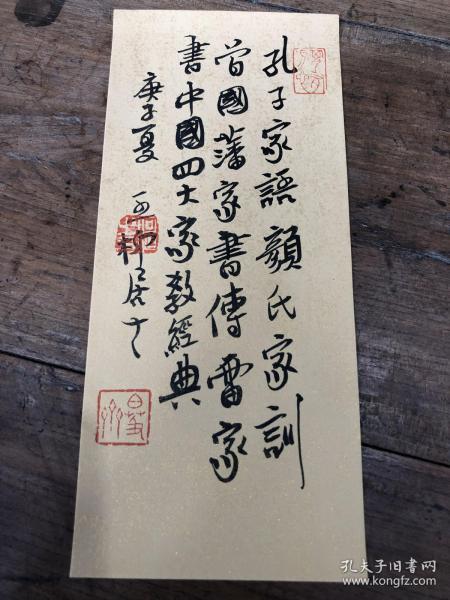 孔子家語顏氏家訓
曾國藩家書傅雷家
書中國四大家教經典
庚子夏 五柳居士
孔夫子旧书网
www.kongfz.com